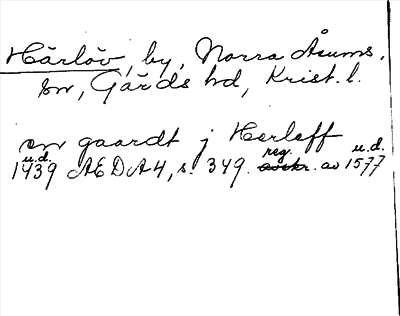 Härlöv, by, Norra Åsums
sn, Gärds hd, Krist. l.
en gaardt j Herleff u.d.
1439 u.d. ÆDA4, s. 349. reg. av 1577